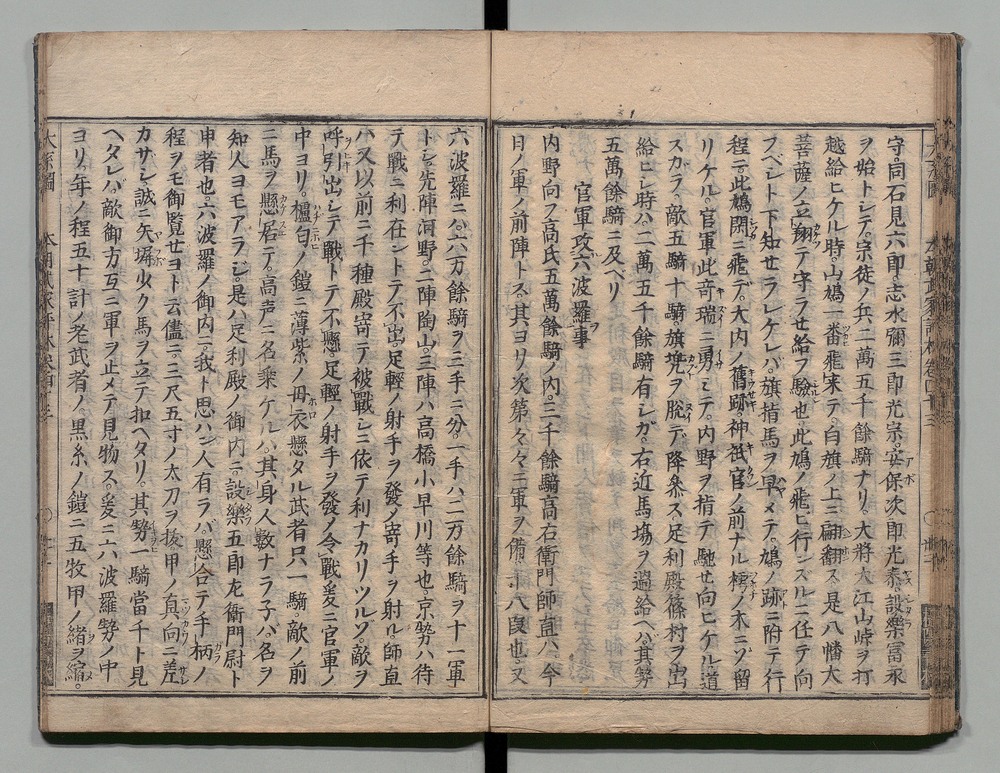 守同石見六郎志水彌三郎光宗安保次郎光泰設樂富永
ヲ始トシテ宗徒ノ兵二萬五千餘騎ナリ大將大江山峠ヲ打
越給ヒケル時山鳩一番飛来テ白旗ノ上ニ翩翻ス是八幡大
菩薩ノ立翔テ守ラせ給フ驗也此鳩ノ飛ヒ行ンズルニ任テ向
フベシト下知せラレケレバ旗指馬ヲ早メテ鳩ノ跡ニ附テ行
程ニ此鳩閑ニ飛デ大内ノ舊跡神祇官ノ前ナル樗ノ木ニゾ留
リケル官軍此奇瑞ニ勇ミテ内野ヲ指テ馳せ向ヒケル道
スガラ敵五騎十騎旗ヲ脱デ降參ス足利殿篠村ヲ出
給ヒシ時ハ二萬五千餘騎有シガ右近馬塲ヲ過給ヘハ其勢
五萬餘騎ニ及ヘリ
官軍攻六波羅事
内野ノ向フ高氏五萬餘騎ノ内三千餘騎高右衛門師直ハ今
日ノ軍ノ前陣トス其ヨリ次第々々ニ軍ヲ備ヘ
六波羅ニハ六万餘騎ヲ三手ニ分一手ハ二万餘騎ヲ十一軍
トシ先陣河野二陣陶山三陣ハ高橋小早川等也京勢ハ待
テ戰ニ利在ントテ不出足輕ノ射手ヲ發ノ寄手ヲ射ル師直
ハ又以前ニ千種殿寄テ被戰シニ依テ利ナカリツルゾ敵ヲ
呼引出シテ戰トテ不懸足輕ノ射手ヲ發ノ令戰爰ニ官軍ノ
中ヨリ櫨匂ノ鎧ニ薄紫ノ母衣懸タル武者只一騎敵ノ前
ニ馬ヲ懸居テ高声ニ名乗ケルハ其身人數ナラ子バ名ヲ
知人ヨモアラジ是ハ足利殿ノ御内ニ設樂五郎左衞門尉ト
申者也六波羅ノ御内ニ我ト思ハン人有ラバ懸合テ手柄ノ
程ヲモ御覧せヨト云儘ニ三尺五寸ノ太刀ヲ抜甲ノ真向ニ差
カサシ誠ニ矢壷少ク馬ヲ立テ扣ヘタリ其勢一騎當千ト見
ヘタレバ敵御方互ニ軍ヲ止メテ見物ス爰ニ六波羅勢ノ中
ヨリ年ノ程五十計ノ老武者ノ黒糸ノ鎧ニ五牧甲ノ緒ヲ縮